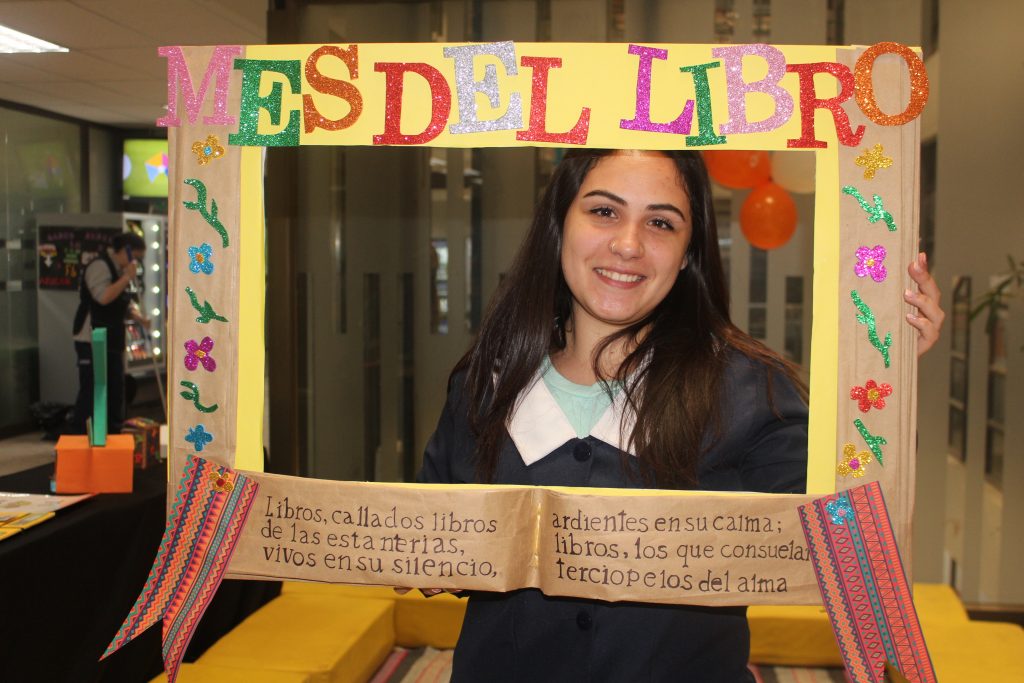 MES DEL LIBRO
Libros, callados libros
de las estanterias,
vivos en su silencio,
ardientes en su calma;
libros, los que consuelan
terciopelos del alma